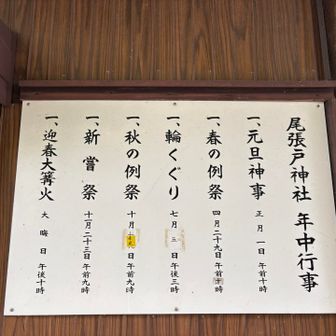 尾張戸神社 年中行事
一、元旦神事 正月一日 午前十時
一、春の例祭 四月二十九日 午前十時
一、輪くぐり 七月三日 午後三時
一、秋の例祭 十月 日 午前九時
一、新嘗祭 十一月二十三日 午前九時
一、迎春大篝火 大晦日 午後十時